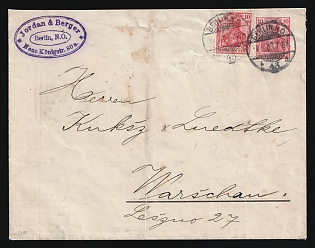 Jordan & Berger
Berlin, N.O.
Neue Königstr.
10
10
BERLIN.N.O.
43
Herren
Kuksz & Luedtke
Warschau.
Leszno 27